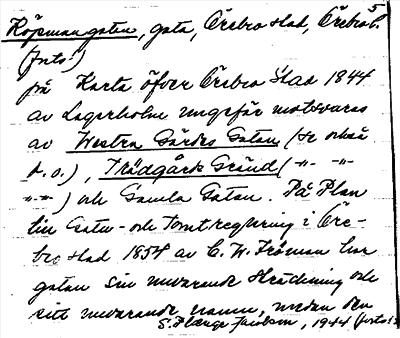 5
Köpmangatan, gata, Örebro stad, Örebro l.
(forts.)
på Karta öfver Örebro Stad 1844
av Lagerholm ungefär motsvaras
av Westra Gärdes Gatan (se också
d.o.), Trädgårds Gränd (-"- -"-
-"-) och Gamla Gatan. På Plan
till Gatu- och Tomtreglering i Öre-
bro stad 1854 av C. W. Ströman har
gatan sin nuvarande sträckning och
sitt nuvarande namn, medan den
S. Hænge Jacobsen, 1944 (forts.)